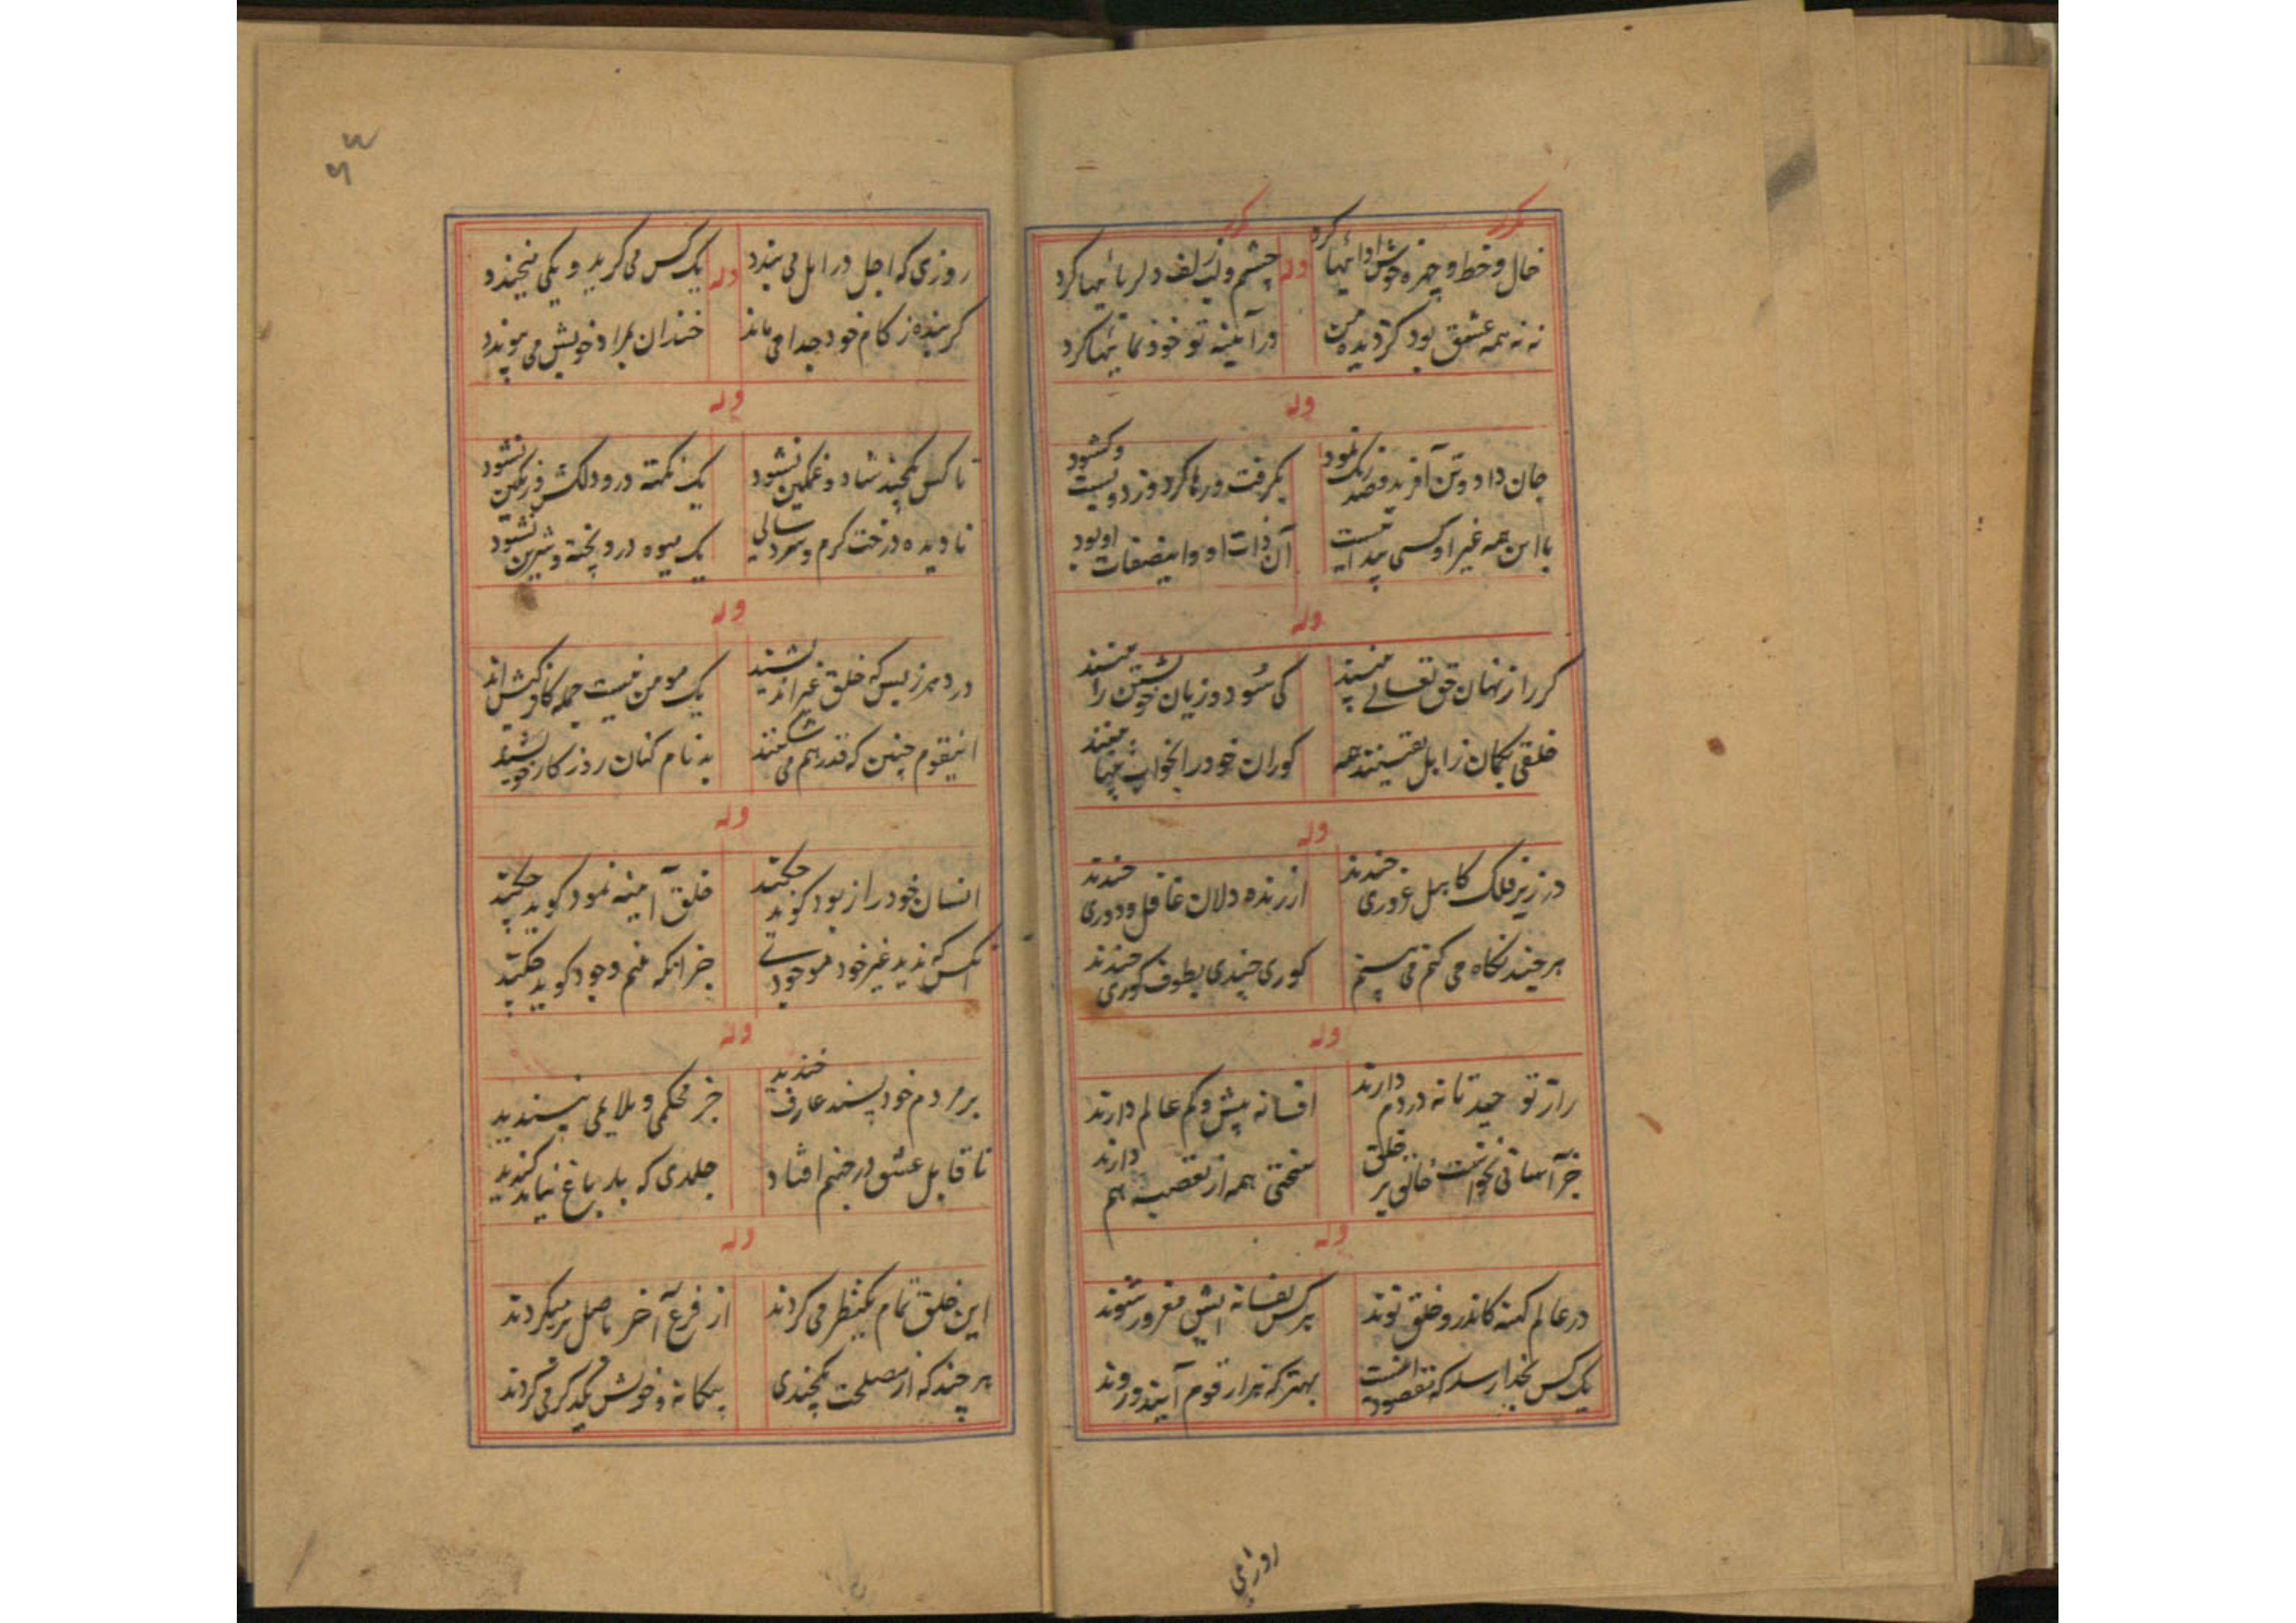 مکرر مکرر
خال و خط و چهره خوش ادائیها کرد وله چشم و لب و زلف دلربائیها کرد
نه نه همه عشق بود کز دیده من در آینه تو خودنمائیها کرد
وله
جان داد و تن آفرید و صد رنگ نمود بگرفت و رها کرد و و کشود
با این همه غیر او کسی پیدا نیست آن ذات او و اینصفات او بود
وله
کر راز نهان حق تعالی کی سود و زیان خویشتن را
خلقی بکمان ز اهل یقینند همه کوران خود را بخواب بینا بینند
وله
در زیر فلک کاهل غروری چندند از زنده دلان غافل و دوری چندند
هر چند نکاه می کنم می بینم کوری چندی بطوف کوری چندند
وله
راز تو دارند افسانه بیش و کم عالم دارند
جز آسانی نخواست خالق بر خلق سختی همه از تعصب هم دارند
وله
در عالم کهنه کاندرو خلق نوند هر کس مغرور شوند
یک کس بخدا رسد که مقصود انست بهتر که هزار قوم آیند و روند
روزی
روزی که اجل در امل می بندد وله یک کس می کرید و یکی میخندد
کرینده ز کام خود جدا می ماند خندان بمراد خویش می پیوندد
وله
تا کس بچند شاد و غمکین نشود یک نکته درو دلکش و رنکین نشود
نادیده درخت کرم و سرد سالی یک میوه درو پخته و شیرین نشود
وله
در دهر ز بس که خلق غیر اندیشند یک مومن نیست جمله کافر کیشند
اینقوم چنین که قدر هم می شکنند بدنام کنان روزکار خویشند
وله
انسان خود را ز بود کوید چکند خلق آینه نمود کوید چکند
آنکس که ندید غیر خود موجودی جز انکه منم وجود کوید چکند
وله
بر مردم خود پسند عارف خندید جز محکمی و ملایمی نپسندید
ناقابل عشق در جهنم افتاد جلدی که بد باغ نیاید کندید
وله
این خلق تمام یکنظر می کردند از فرع آخر باصل بر میکردند
هر چند که از مصلحت یکچندی بیکانه و خویش یکدکر می کردند